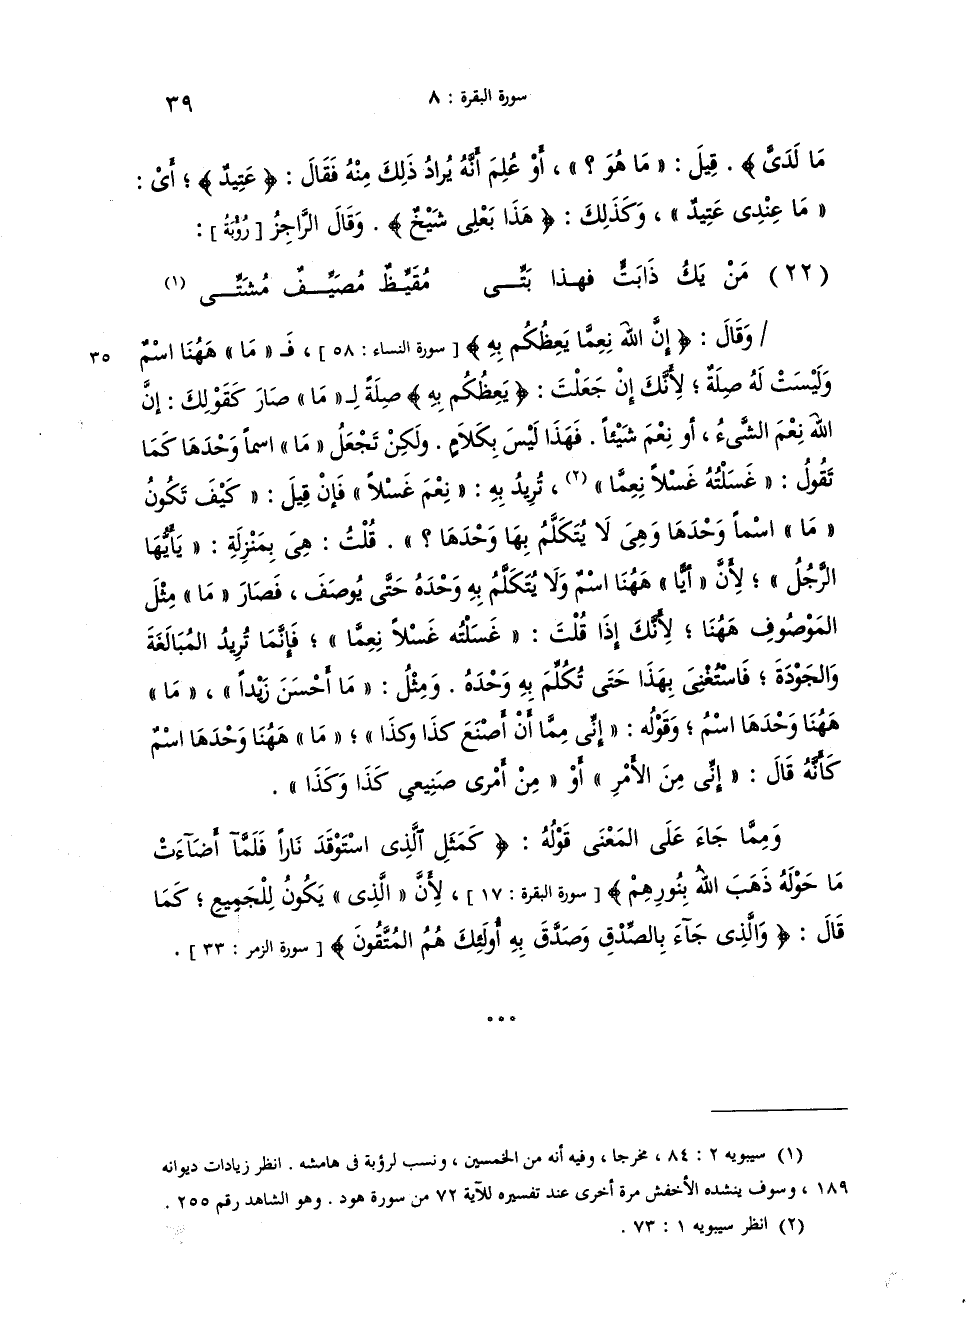 سورة البقرة : ٨ ٣٩
مَا لَدَىَّ ﴾ . قِيلَ : « مَا هُوَ ؟ » ، أَوْ عُلِمَ أَنَّهُ يُرَادُ ذَلِكَ مِنْهُ فَقَالَ : ﴿ عَتِيدٌ ﴾ ؛ أَىْ :
« مَا عِنْدِى عَتِيدٌ » ، وَكَذَلِكَ : ﴿ هَذَا بَعْلِى شَيْخٌ ﴾ . وَقَالَ الرَّاجِزُ [ رُؤْبَةُ ] :
(٢٢) مَنْ يَكُ ذَابَتٍّ فهـذا بَتِّــى مُقَيِّـظٌ مُصَيِّــفٌ مُشَتِّــى (١)
/ وَقَالَ : ﴿ إِنَّ اللهَ نِعِمَّا يَعِظُكُم بِهِ ﴾ [ سورة النساء : ٥٨ ] ، فَـ « مَا » هَهُنَا اسْمٌ ٣٥
وَلَيْسَتْ لَهُ صِلَةٌ ؛ لِأَنَّكَ إِنْ جَعَلْتَ : ﴿ يَعِظُكُم بِهِ ﴾ صِلَةً لِـ « مَا » صَارَ كَقَوْلِكَ : إِنَّ
اللهَ نِعْمَ الشَّىْءُ ، أو نِعْمَ شَيْئاً . فَهَذَا لَيْسَ بِكَلَامٍ . ولَكِنْ تَجْعَلُ « مَا » اسماً وَحْدَهَا كَمَا
تَقُولُ : « غَسَلْتُهُ غَسْلاً نِعِمَّا » (٢) ، تُرِيدُ بِهِ : « نِعْمَ غَسْلاً » فَإِنْ قِيلَ : « كَيْفَ تَكُونُ
« مَا » اسْماً وَحْدَهَا وَهِىَ لَا يُتَكَلَّمُ بِهَا وَحْدَهَا ؟ » . قُلْتُ : هِىَ بِمَنْزِلَةِ : « يَأَيُّهَا
الرَّجُلُ » ؛ لِأَنَّ « أيًّا » هَهُنَا اسْمٌ وَلَا يُتَكَلَّمُ بِهِ وَحْدَهُ حَتَّى يُوصَفَ ، فَصَارَ « مَا » مِثْلَ
المَوْصُوفِ هَهُنَا ؛ لِأَنَّكَ إِذَا قُلْتَ : « غَسَلْتُه غَسْلاً نِعِمَّا » ؛ فَإِنَّمَا تُرِيدُ المُبَالَغَةَ
وَالجَوْدَةَ ؛ فَاسْتُغْنِىَ بِهَذَا حَتَى تُكُلِّمَ بِهِ وَحْدَهُ . وَمِثْلُ : « مَا أَحْسَنَ زَيْداً » ، « مَا »
هَهُنَا وَحْدَهَا اسْمٌ ؛ وَقَوْلُه : « إِنِّى مِمَّا أَنْ أَصْنَعَ كذَا وكذَا » ؛ « مَا » هَهُنَا وَحْدَهَا اسْمٌ
كَأَنَّهُ قَالَ : « إِنِّى مِنَ الأَمْرِ » أَوْ « مِنْ أَمْرِى صَنِيعِي كَذَا وَكَذَا » .
وَمِمَّا جَاءَ عَلَى المَعْنَى قَوْلُهُ : ﴿ كَمَثَلِ ٱلَّذِى اسْتَوْقَدَ نَاراً فَلَمَّآ أَضَآءَتْ
مَا حَوْلَهُ ذَهَبَ اللهُ بِنُورِهِمْ ﴾ [ سورة البقرة : ١٧ ] ، لِأَنَّ « الَّذِى » يَكُونُ لِلْجَمِيعِ ؛ كَمَا
قَالَ : ﴿ وَالَّذِى جَآءَ بِالصِّدْقِ وَصَدَّقَ بِهِ أُولَئِكَ هُمُ المُتَّقُونَ ﴾ [ سورة الزمر : ٣٣ ] .
٠٠٠
(١) سيبويه ٢ : ٨٤ ، مخرجا ، وفيه أنه من الخمسين ، ونسب لرؤبة فى هامشه . انظر زيادات ديوانه
١٨٩ ، وسوف ينشده الأخفش مرة أخرى عند تفسيره للآية ٧٢ من سورة هود . وهو الشاهد رقم ٢٥٥ .
(٢) انظر سيبويه ١ : ٧٣ .